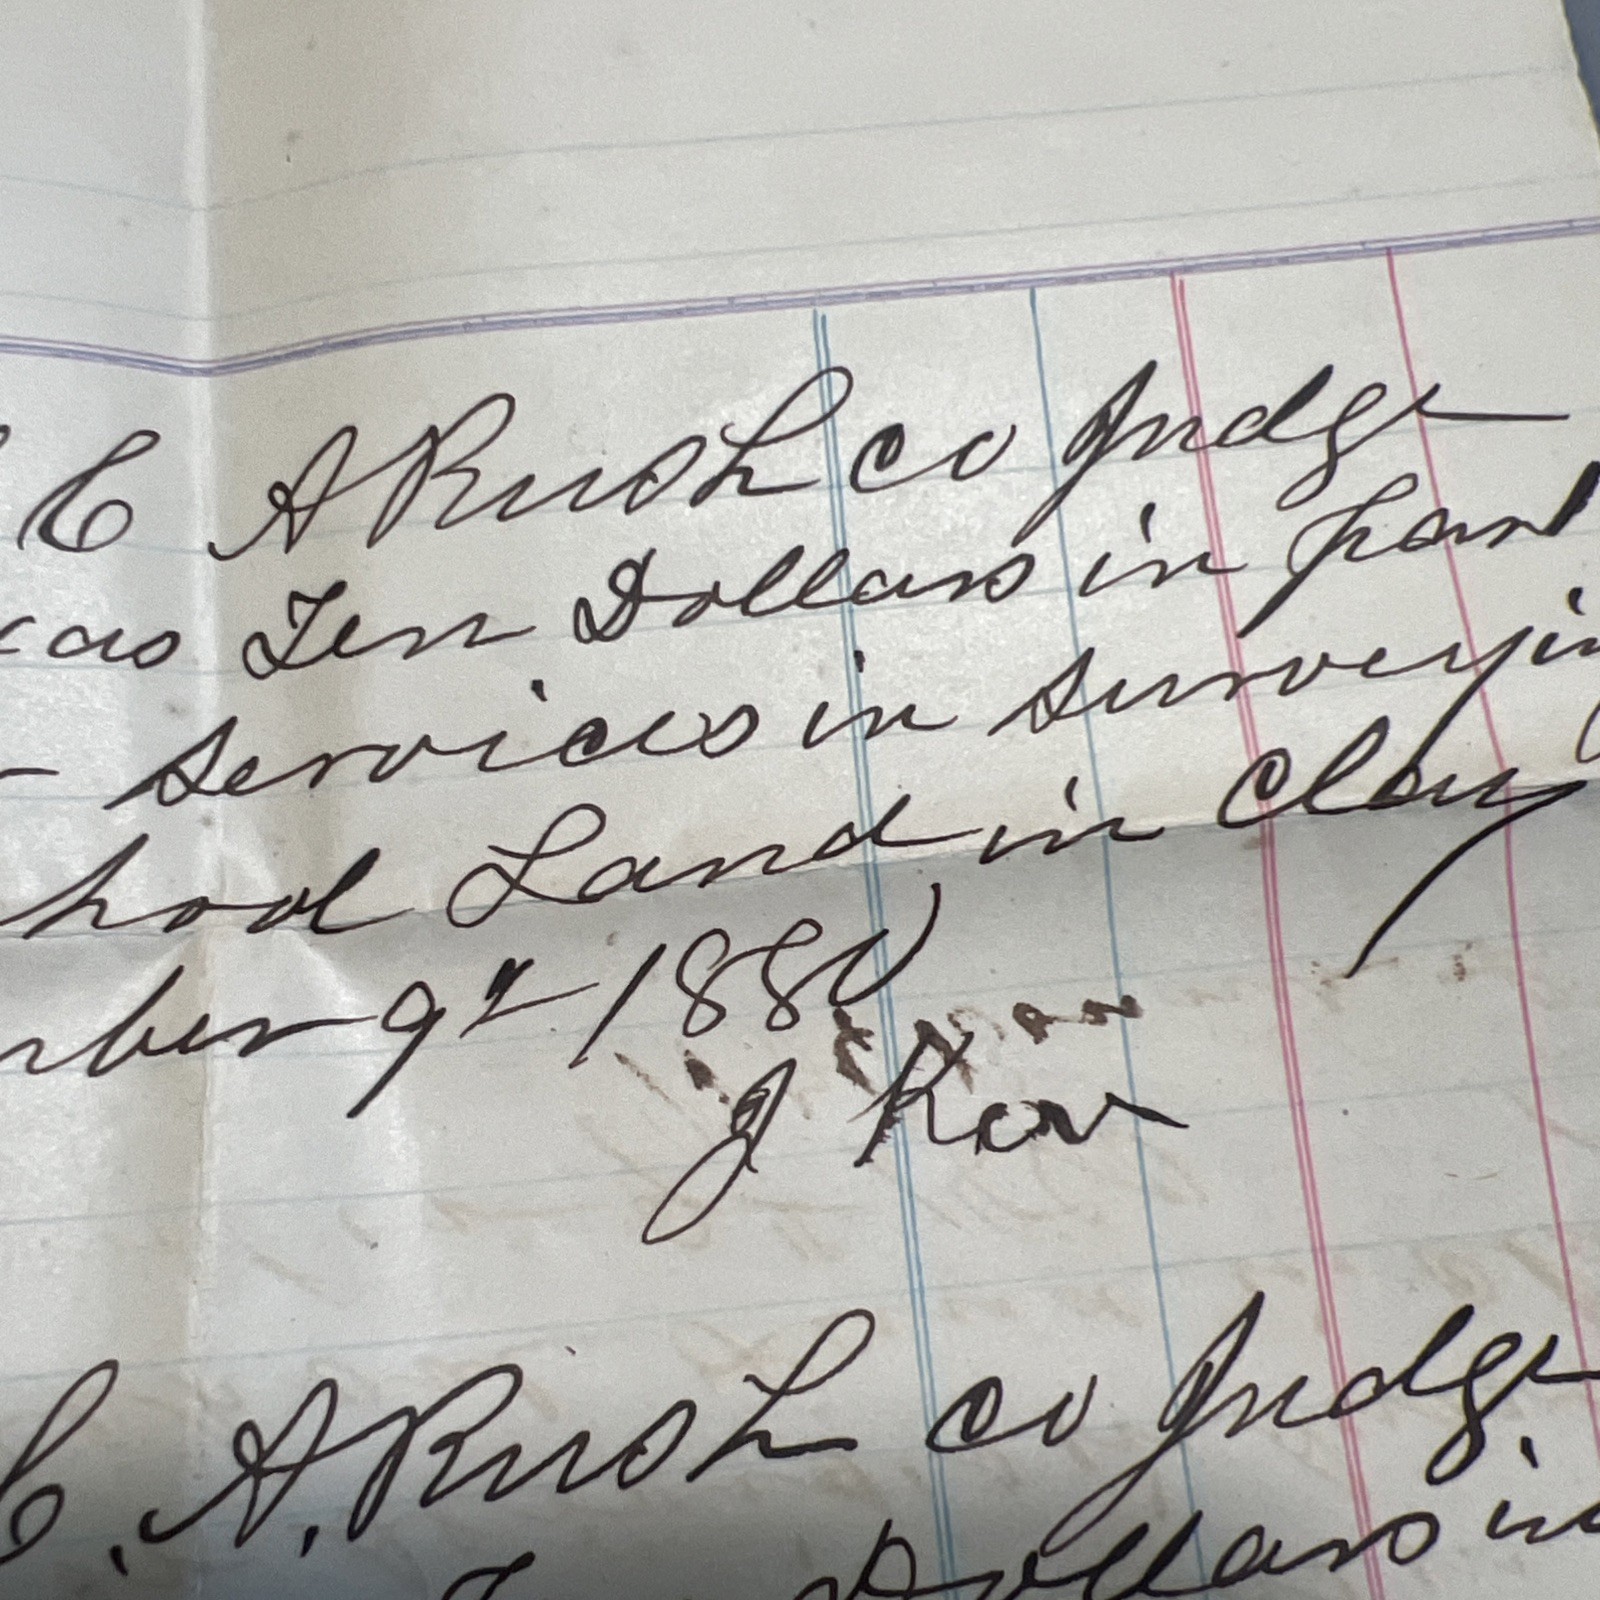 C A Rush co Judge
xas Ten Dollars in part
services in surveyin
hool Land in Clay
mber 9th 1880
J
C. A. Rush co Judge
Ten Dollars in